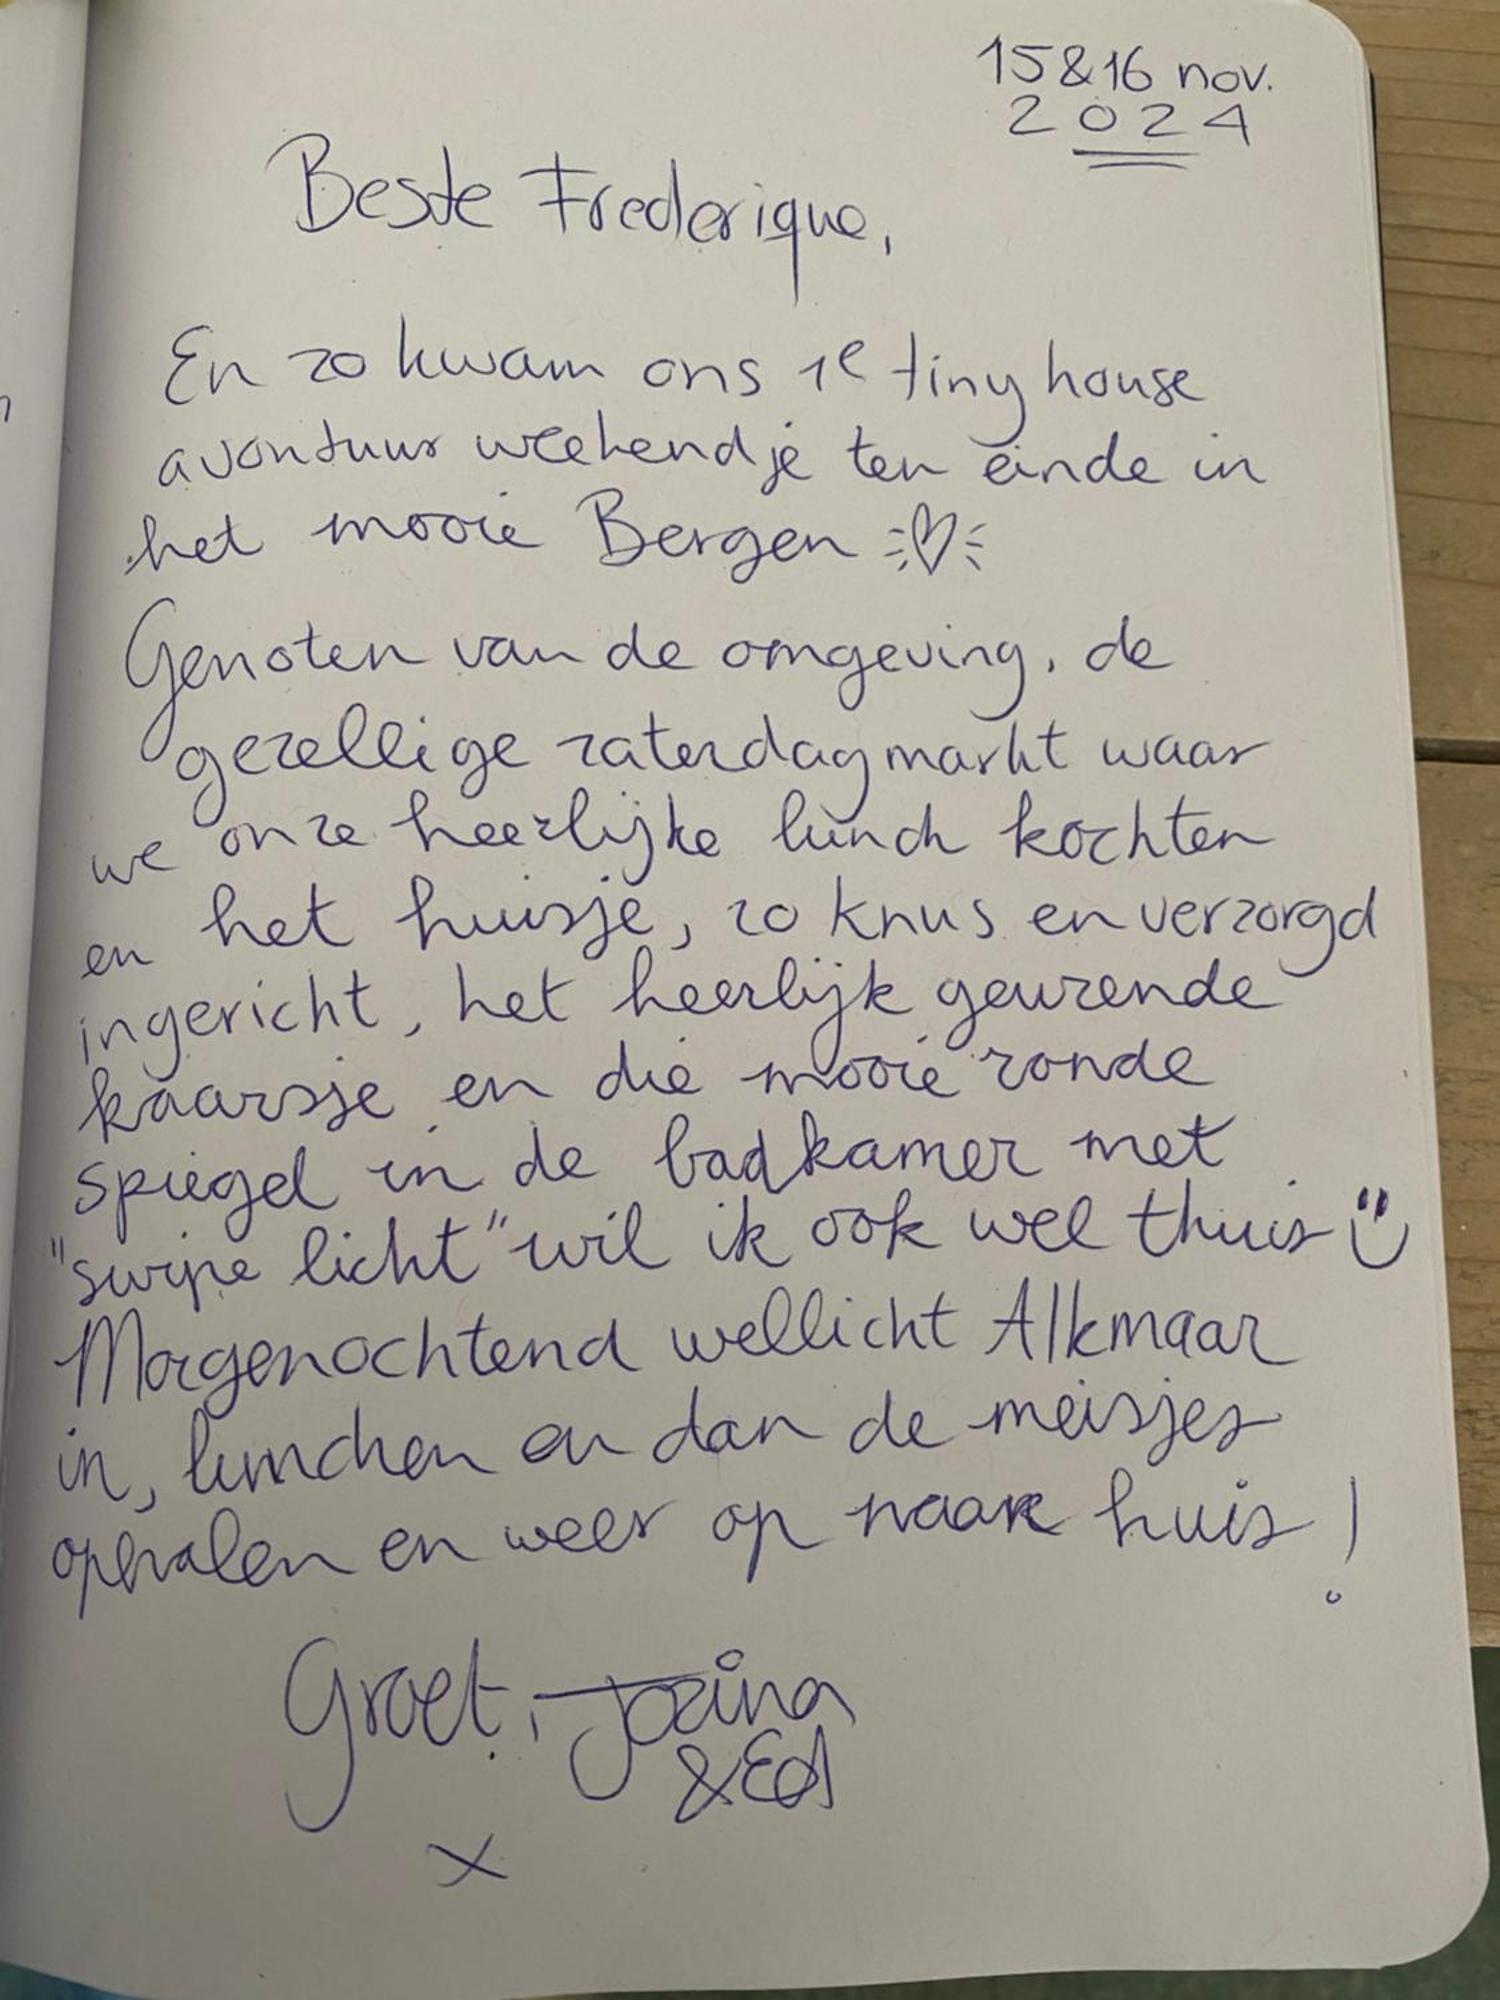 15&16 nov.
2024
Beste Frederique,
En zo kwam ons 1e tiny house
avontuur weekendje ten einde in
het mooie Bergen ♡
Genoten van de omgeving, de
gezellige zaterdagmarkt waar
we onze heerlijke lunch kochten
en het huisje, zo knus en verzorgd
ingericht, het heerlijk geurende
kaarsje en die mooie ronde
spiegel in de badkamer met
"swipe licht" wil ik ook wel thuis ☺
Morgenochtend wellicht Alkmaar
in, lunchen en dan de meisjes
ophalen en weer op naar huis!
Groet, Jozina
&Ed
x